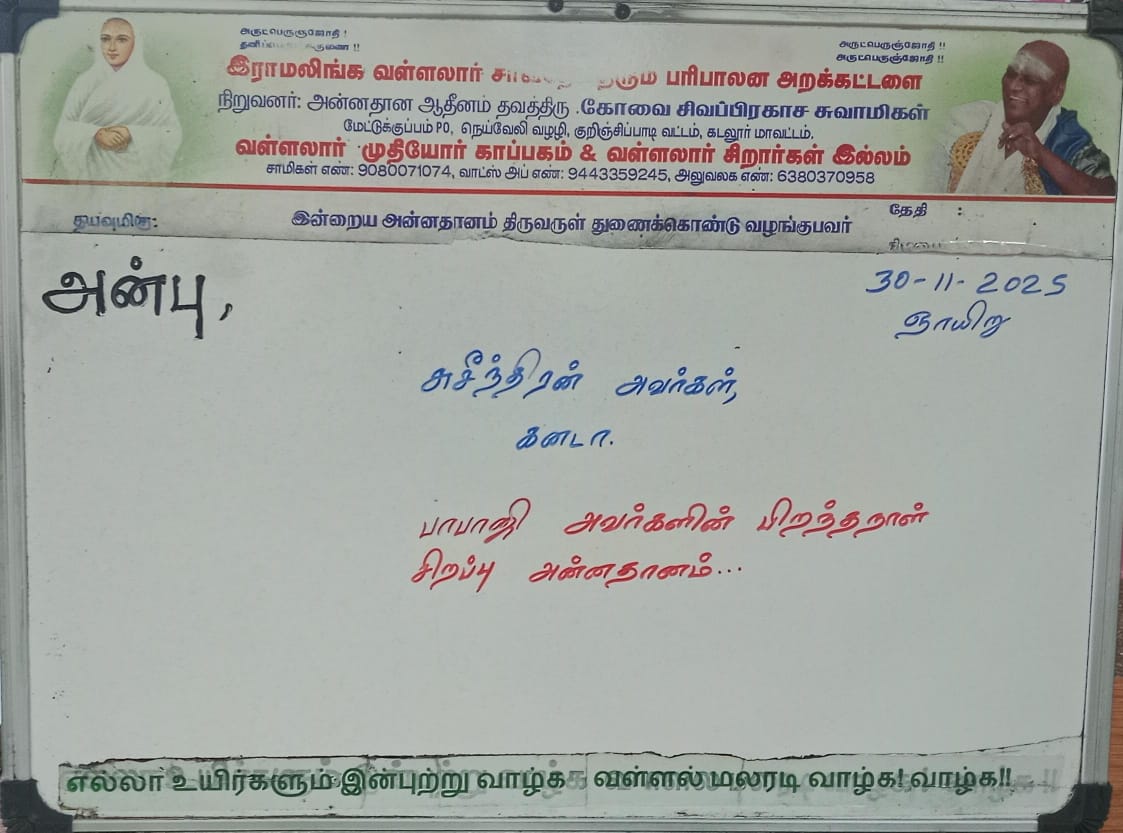 அருட்பெருஞ்ஜோதி !
அருட்பெருஞ்ஜோதி !!
அருட்பெருஞ்ஜோதி !!
இராமலிங்க வள்ளலார் பரிபாலன அறக்கட்டளை
நிறுவனர்: அன்னதான ஆதீனம் தவத்திரு .கோவை சிவப்பிரகாச சுவாமிகள்
மேட்டுக்குப்பம் PO, நெய்வேலி வழி, குறிஞ்சிப்பாடி வட்டம், கடலூர் மாவட்டம்,
வள்ளலார் முதியோர் காப்பகம் & வள்ளலார் சிறார்கள் இல்லம்
சாமிகள் எண்: 9080071074, வாட்ஸ் அப் எண்: 9443359245, அலுவலக எண்: 6380370958
இன்றைய அன்னதானம் திருவருள் துணைக்கொண்டு வழங்குபவர்
தேதி :
அன்பு,
30-11-2025
ஞாயிறு
சுசீந்திரன் அவர்கள்,
கனடா.
பாபாஜி அவர்களின் பிறந்தநாள்
சிறப்பு அன்னதானம்...
எல்லா உயிர்களும் இன்புற்று வாழ்க வள்ளல் மலரடி வாழ்க! வாழ்க!!